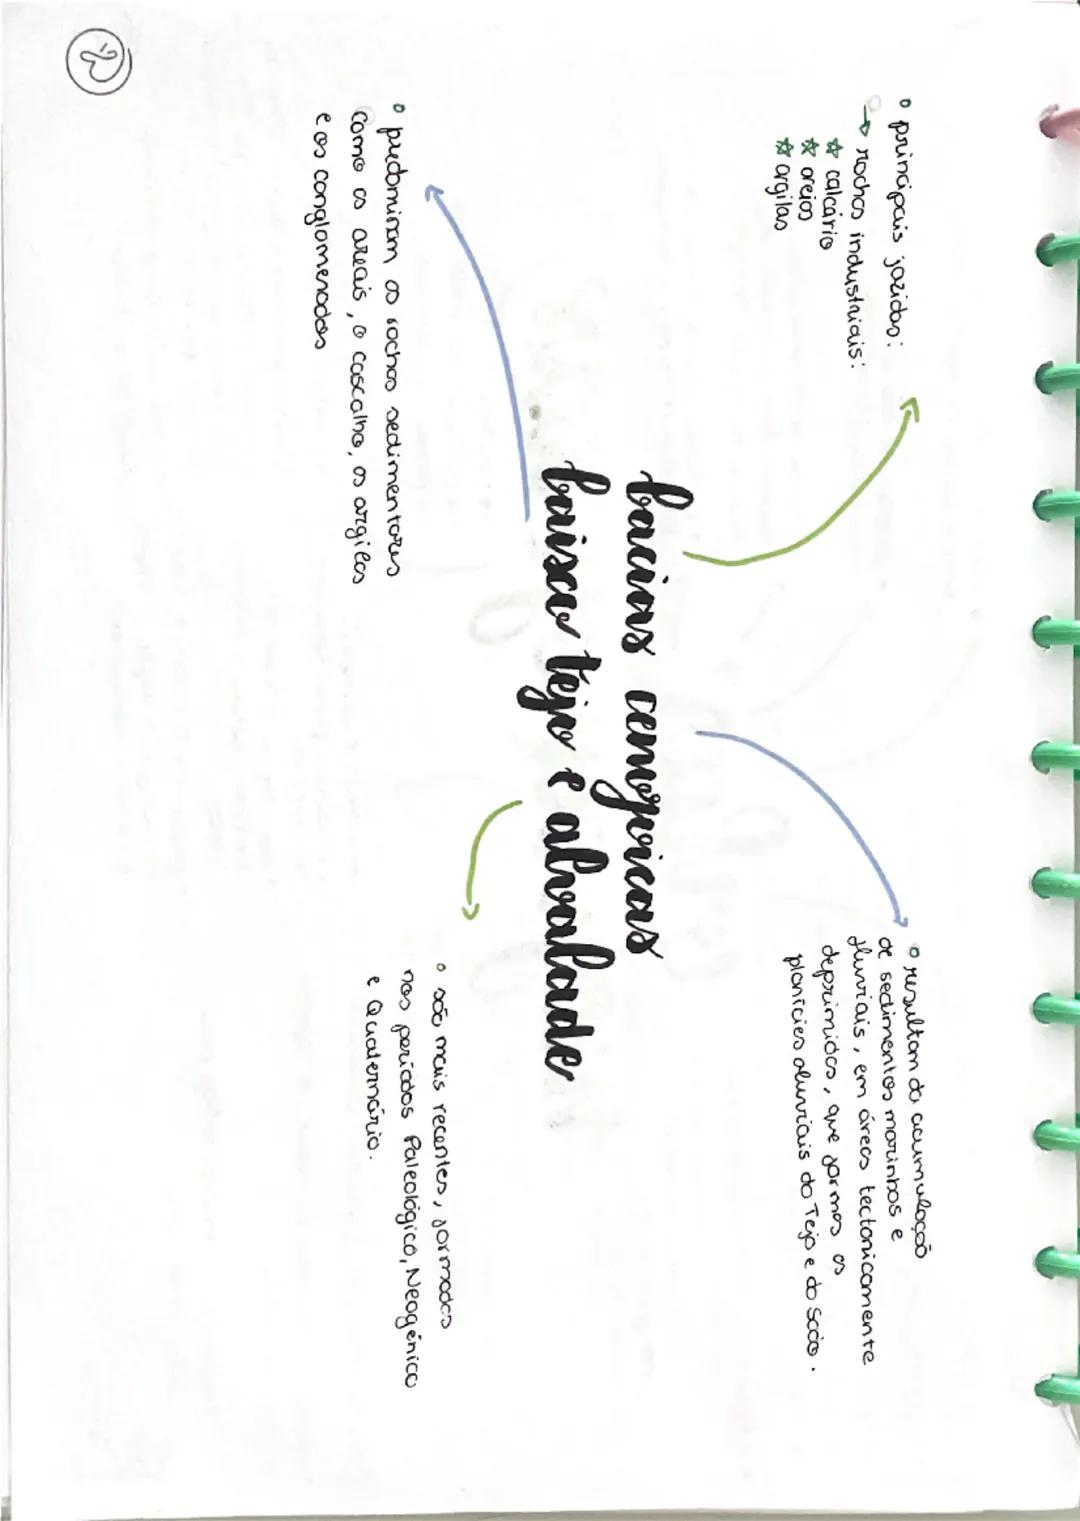 bacias cenozoicas
baixo tejo e alvalade
• principais jazidas:
→ rochas industriais:
☆ calcário
☆ areias
☆ argilas
• resultam da acumulação
de sedimentos marinhos e
fluviais, em áreas tectonicamente
deprimidas, que formas as
planícies aluviais do Tejo e do Sado.
• predominam as rochas sedimentares
como as areais, o cascalho, as argilas
e os conglomerados
• são mais recentes, formados
nos períodos Paleológico, Neogénico
e Quaternário.